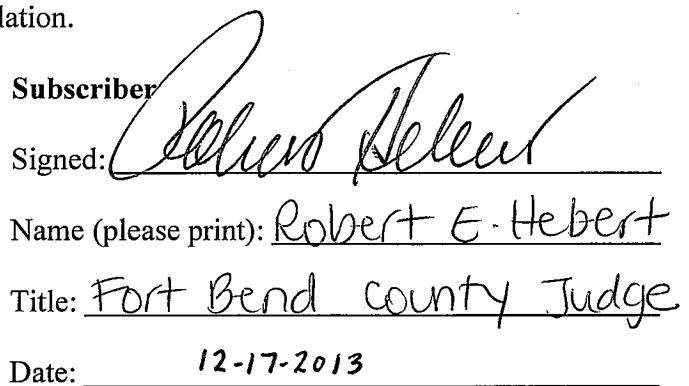 lation.
Subscriber
Signed: Robert Hebert
Name (please print): Robert E. Hebert
Title: Fort Bend County Judge
Date: 12-17-2013